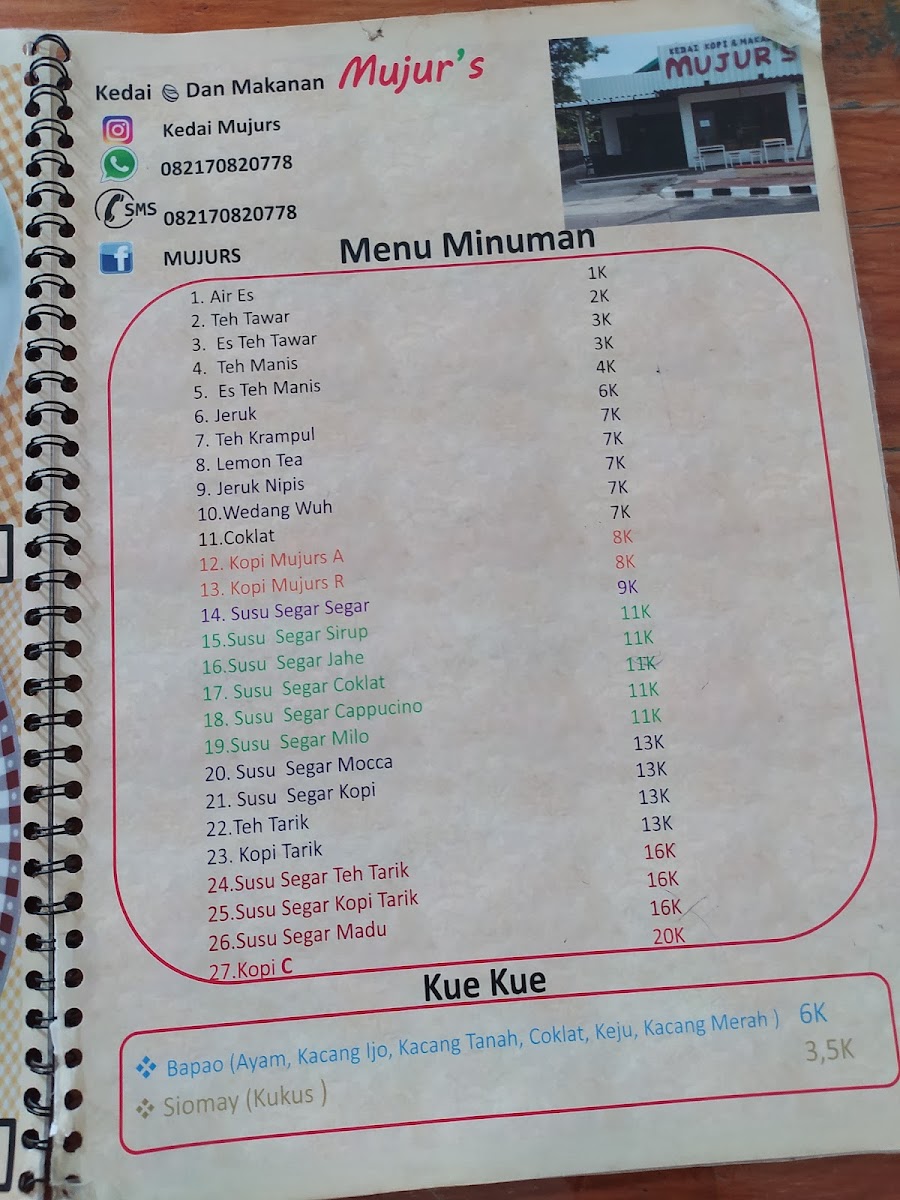 Kedai Dan Makanan Mujur's
KEDAI KOPI & MAKA
MUJUR'S
Kedai Mujurs
082170820778
SMS 082170820778
MUJURS
Menu Minuman
1. Air Es 1K
2. Teh Tawar 2K
3. Es Teh Tawar 3K
4. Teh Manis 3K
5. Es Teh Manis 4K
6. Jeruk 6K
7. Teh Krampul 7K
8. Lemon Tea 7K
9. Jeruk Nipis 7K
10.Wedang Wuh 7K
11.Coklat 7K
12. Kopi Mujurs A 8K
13. Kopi Mujurs R 8K
14. Susu Segar Segar 9K
15.Susu Segar Sirup 11K
16.Susu Segar Jahe 11K
17. Susu Segar Coklat 11K
18. Susu Segar Cappucino 11K
19.Susu Segar Milo 11K
20. Susu Segar Mocca 13K
21. Susu Segar Kopi 13K
22.Teh Tarik 13K
23. Kopi Tarik 13K
24.Susu Segar Teh Tarik 16K
25.Susu Segar Kopi Tarik 16K
26.Susu Segar Madu 16K
27.Kopi C 20K
Kue Kue
Bapao (Ayam, Kacang Ijo, Kacang Tanah, Coklat, Keju, Kacang Merah ) 6K
Siomay (Kukus ) 3,5K